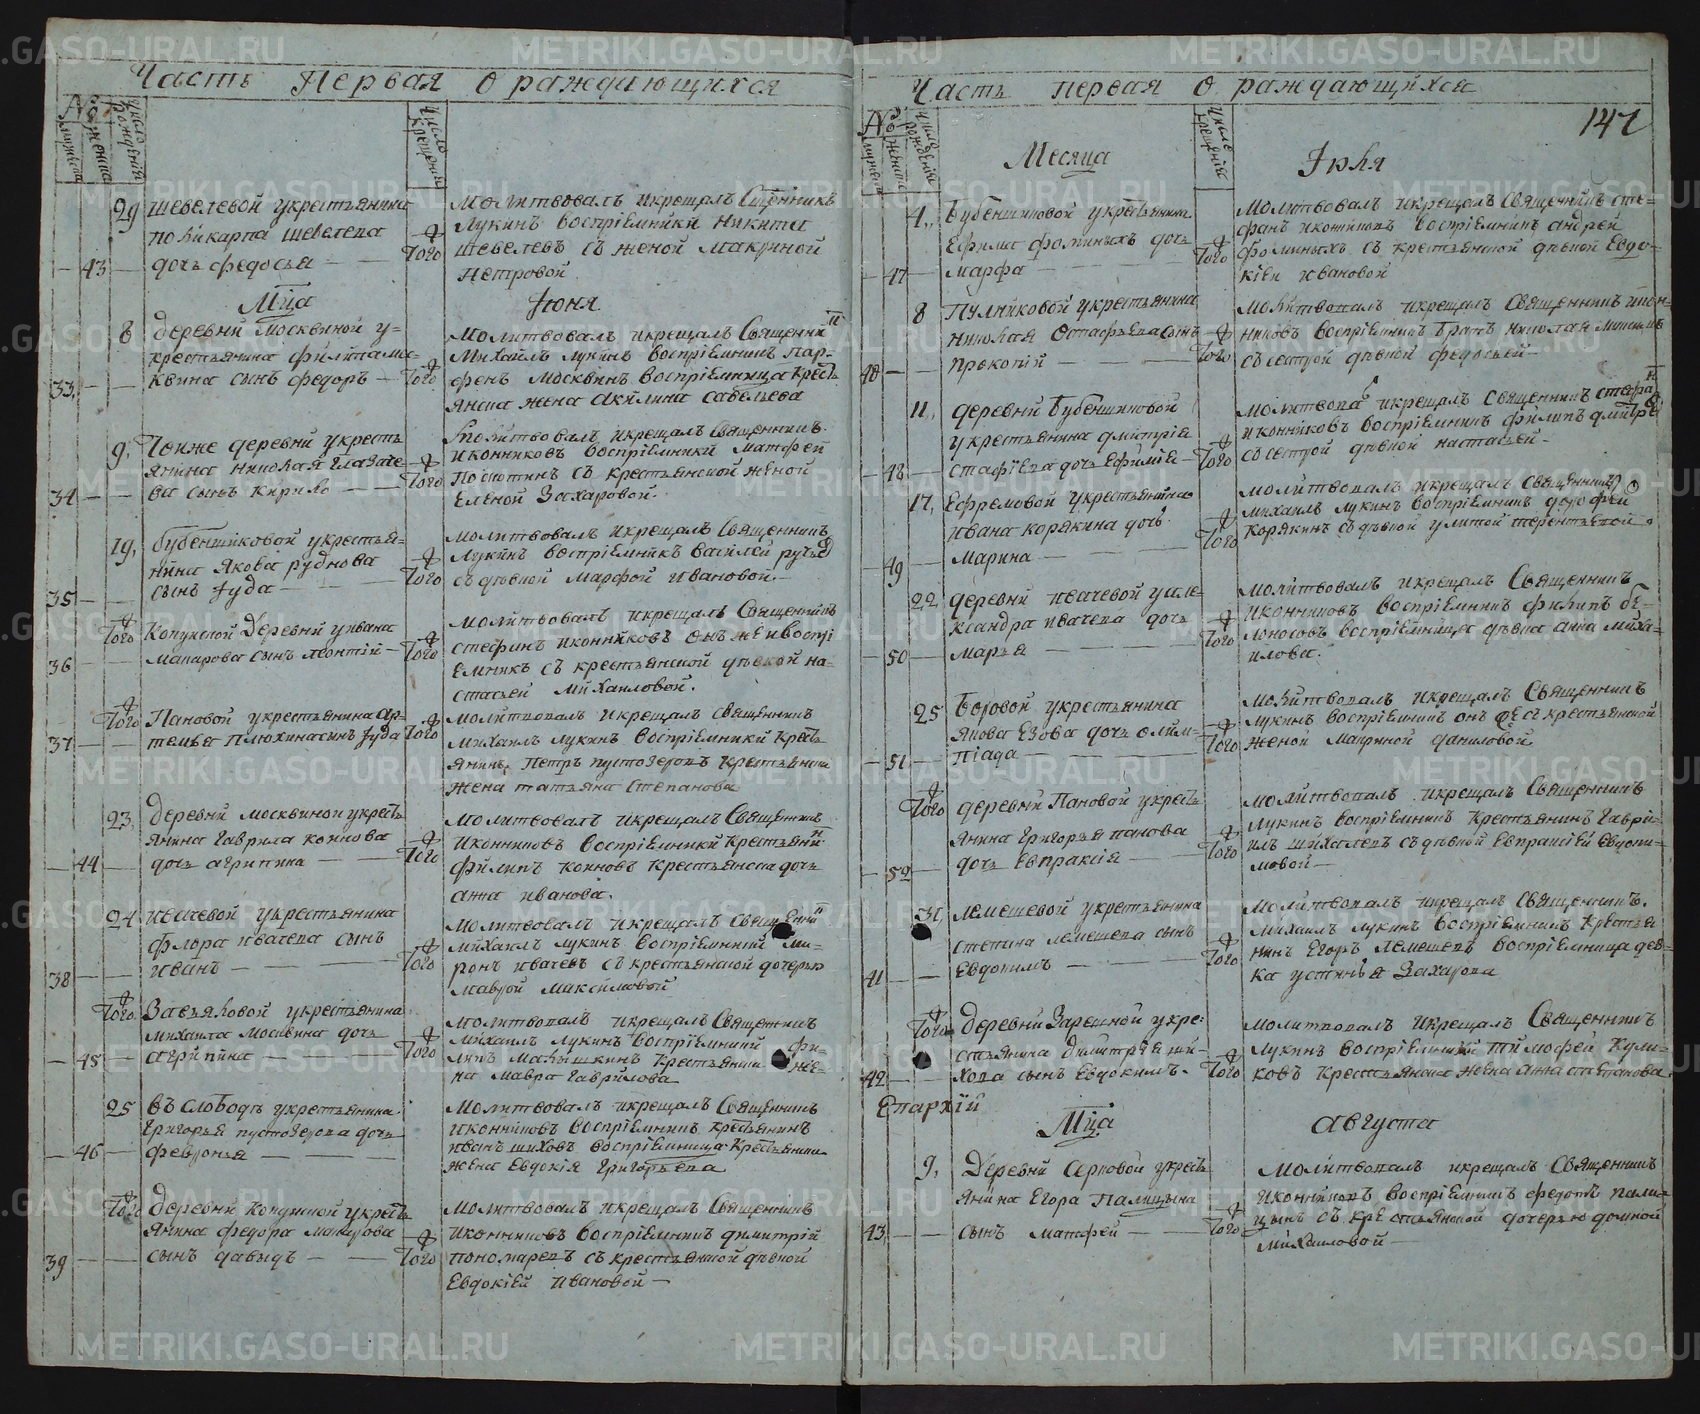 Часть Первая О раждающихся
№
мужеска
женска
число рождения
число крещения
29 Шевелевой у крестьянина
Поликарпа Шевелева
43 дочь Федосья
тогож
Молитвовалъ и крещалъ Сщенникъ
Лукинъ восприемники Никита
Шевелевъ съ женой Макриной
Петровой
Мца Iюня
8 деревни Москвиной у
крестьянина Филипа Мо-
33 квина сынъ Федоръ
Того
Молитвовалъ и крещалъ Священни
Михаилъ Лукинъ восприемникъ Пар-
фенъ Москвинъ восприемница Крест-
янска жена Акилина Савельева
9. Тоиже деревни у кресть
янина Николая Глазаче
34 ва сынъ Кирило
Того
Молитвовалъ и крещалъ Священникъ
Иконниковъ восприемники Матфей
Поскотинъ съ крестьянской женой
Еленой Захаровой.
19. Бубеншиковой у крестья-
нина Якова Руднова
35 сынъ Iуда
Того
Молитвовалъ и крещалъ Священникъ
Лукинъ восприемникъ Василей Рудн
съ девкой Марфой Ивановой.
Того Копунской деревни у Ивана
36 Макарова сынъ Леонтiй
Того
Молитвовалъ и крещалъ Священникъ
Стефанъ Иконниковъ онъ же и воспрi
емникъ съ крестьянской девкой На-
стасьей Михаиловой.
Того Пановой у крестьянина Ар-
37 темья Плюхина сынъ Iуда
Того
Молитвовалъ и крещалъ Священникъ
Михаилъ Лукинъ воспрiемники крест-
янинъ Петръ Пустозеровъ крестьянска
жена Татьяна Степанова
23. деревни Москвинои у крест-
янина Гаврила Коннова
44 дочь Агрипина
Того
Молитвовалъ и крещалъ Священникъ
Иконниковъ воспрiемники крестьяни
Филипъ Конновъ крестьянска дочь
Анна Иванова.
24 Ивачевой у крестьянина
Флора Ивачева сынъ
38 Иванъ
Того
Молитвовалъ и крещалъ Священни
Михаилъ Лукинъ воспрiемники Ми-
ронъ Ивачевъ съ крестьянской дочерью
Маврой Максимовой
Того Завьяловой у крестьянина
Михаила Москвина дочь
45 Агрипина
Того
Молитвовалъ и крещалъ Священникъ
Михаилъ Лукинъ воспрiемники Фи-
липъ Малышкинъ крестьянска же-
на Мавра Гаврилова
25 въ слободе у крестьянина
Григорья Пустозерова дочь
46 Февронья
Молитвовалъ и крещалъ Священникъ
Иконниковъ воспрiемникъ крестьянинъ
Иванъ Шиховъ воспрiемница крестьянска
жена Евдокiя Григорьева
Того деревни Копунской у крест-
янина Федора Макарова
39 сынъ Давыдъ
Того
Молитвовалъ и крещалъ Священникъ
Иконниковъ воспрiемникъ Димитрiй
Пономаревъ съ крестьянской девкой
Евдокiей Ивановой
Часть первая О раждающихся
147
№
мужеска
женска
число рождения
число крещения
Месяца Iюля
4. Бубеншиковой у крестьянина
Ефима Фоминыхъ дочь
47 Марфа
Того
Молитвовалъ и крещалъ Священникъ Сте-
фанъ Иконниковъ воспрiемникъ Андрей
Фоминыхъ съ крестьянской девкой Евдо-
кiеи Ивановой
8 Пулниковой у крестьянина
Николая Остафьева сынъ
40 Прокопiй
Того
Молитвовалъ и крещалъ Священникъ Икон-
никовъ воспрiемникъ братъ Николая
съ сестрой девкой Федосьей
11. деревни Бубеншиковой
у крестьянина Дмитрiя
48 Стафiева дочь Ефимiя
Того
Молитвовалъ и крещалъ Священникъ Стефа
Иконниковъ воспрiемникъ Филипъ Дмитре
съ сестрой девкой Настасьей
17. Ефремовой у крестьянина
Ивана Корякина дочь
49 Марина
Того
Молитвовалъ и крещалъ Священник
Михаилъ Лукинъ воспрiемникъ Дорофей
Корякинъ съ девкой Улитой Терентьевой
22 деревни Ивачевой у Але-
ксандра Ивачева дочь
50 Марья
Того
Молитвовалъ и крещалъ Священникъ
Иконниковъ воспрiемникъ Филипъ Бе-
лоносовъ воспрiемница девка Анна Миха-
илова.
25 Боровой у крестьянина
Якова Езова дочь Олим-
51 пiада
Того
Молитвовалъ и крещалъ Священникъ
Лукинъ воспрiемникъ онъ же съ крестьянской
женой Макриной Даниловой
Того деревни Пановой у крест-
янина Григорья Панова
52 дочь Евпраксiя
Того
Молитвовалъ и крещалъ Священникъ
Лукинъ воспрiемникъ крестьянинъ Гаври-
илъ Михалевъ съ девкой Евпраксiей Евдоки-
мовой
31 Лемешевой у крестьянина
Степана Лемешева сынъ
41 Евдокимъ
Того
Молитвовалъ и крещалъ Священникъ
Михаилъ Лукинъ воспрiемникъ крестья
нинъ Егоръ Лемешевъ воспрiемница дев-
ка Устинья Захарова
Того деревни Зарешной у кре-
стьянина Димитрiя Ши-
42 хова сынъ Евдокимъ.
Того
Молитвовалъ и крещалъ Священникъ
Лукинъ воспрiемникъ Тимофей Кули-
ковъ крестьянска жена Анна Степанова
Епархiи
Мца Августа
9. деревни Серковой у крест-
янина Егора Палицына
43 сынъ Матфей
Того
Молитвовалъ и крещалъ Священникъ
Иконниковъ воспрiемникъ Федотъ Пали-
цынъ съ крестьянской дочерью Домной
Михаиловой
METRIKI.GASO-URAL.RU